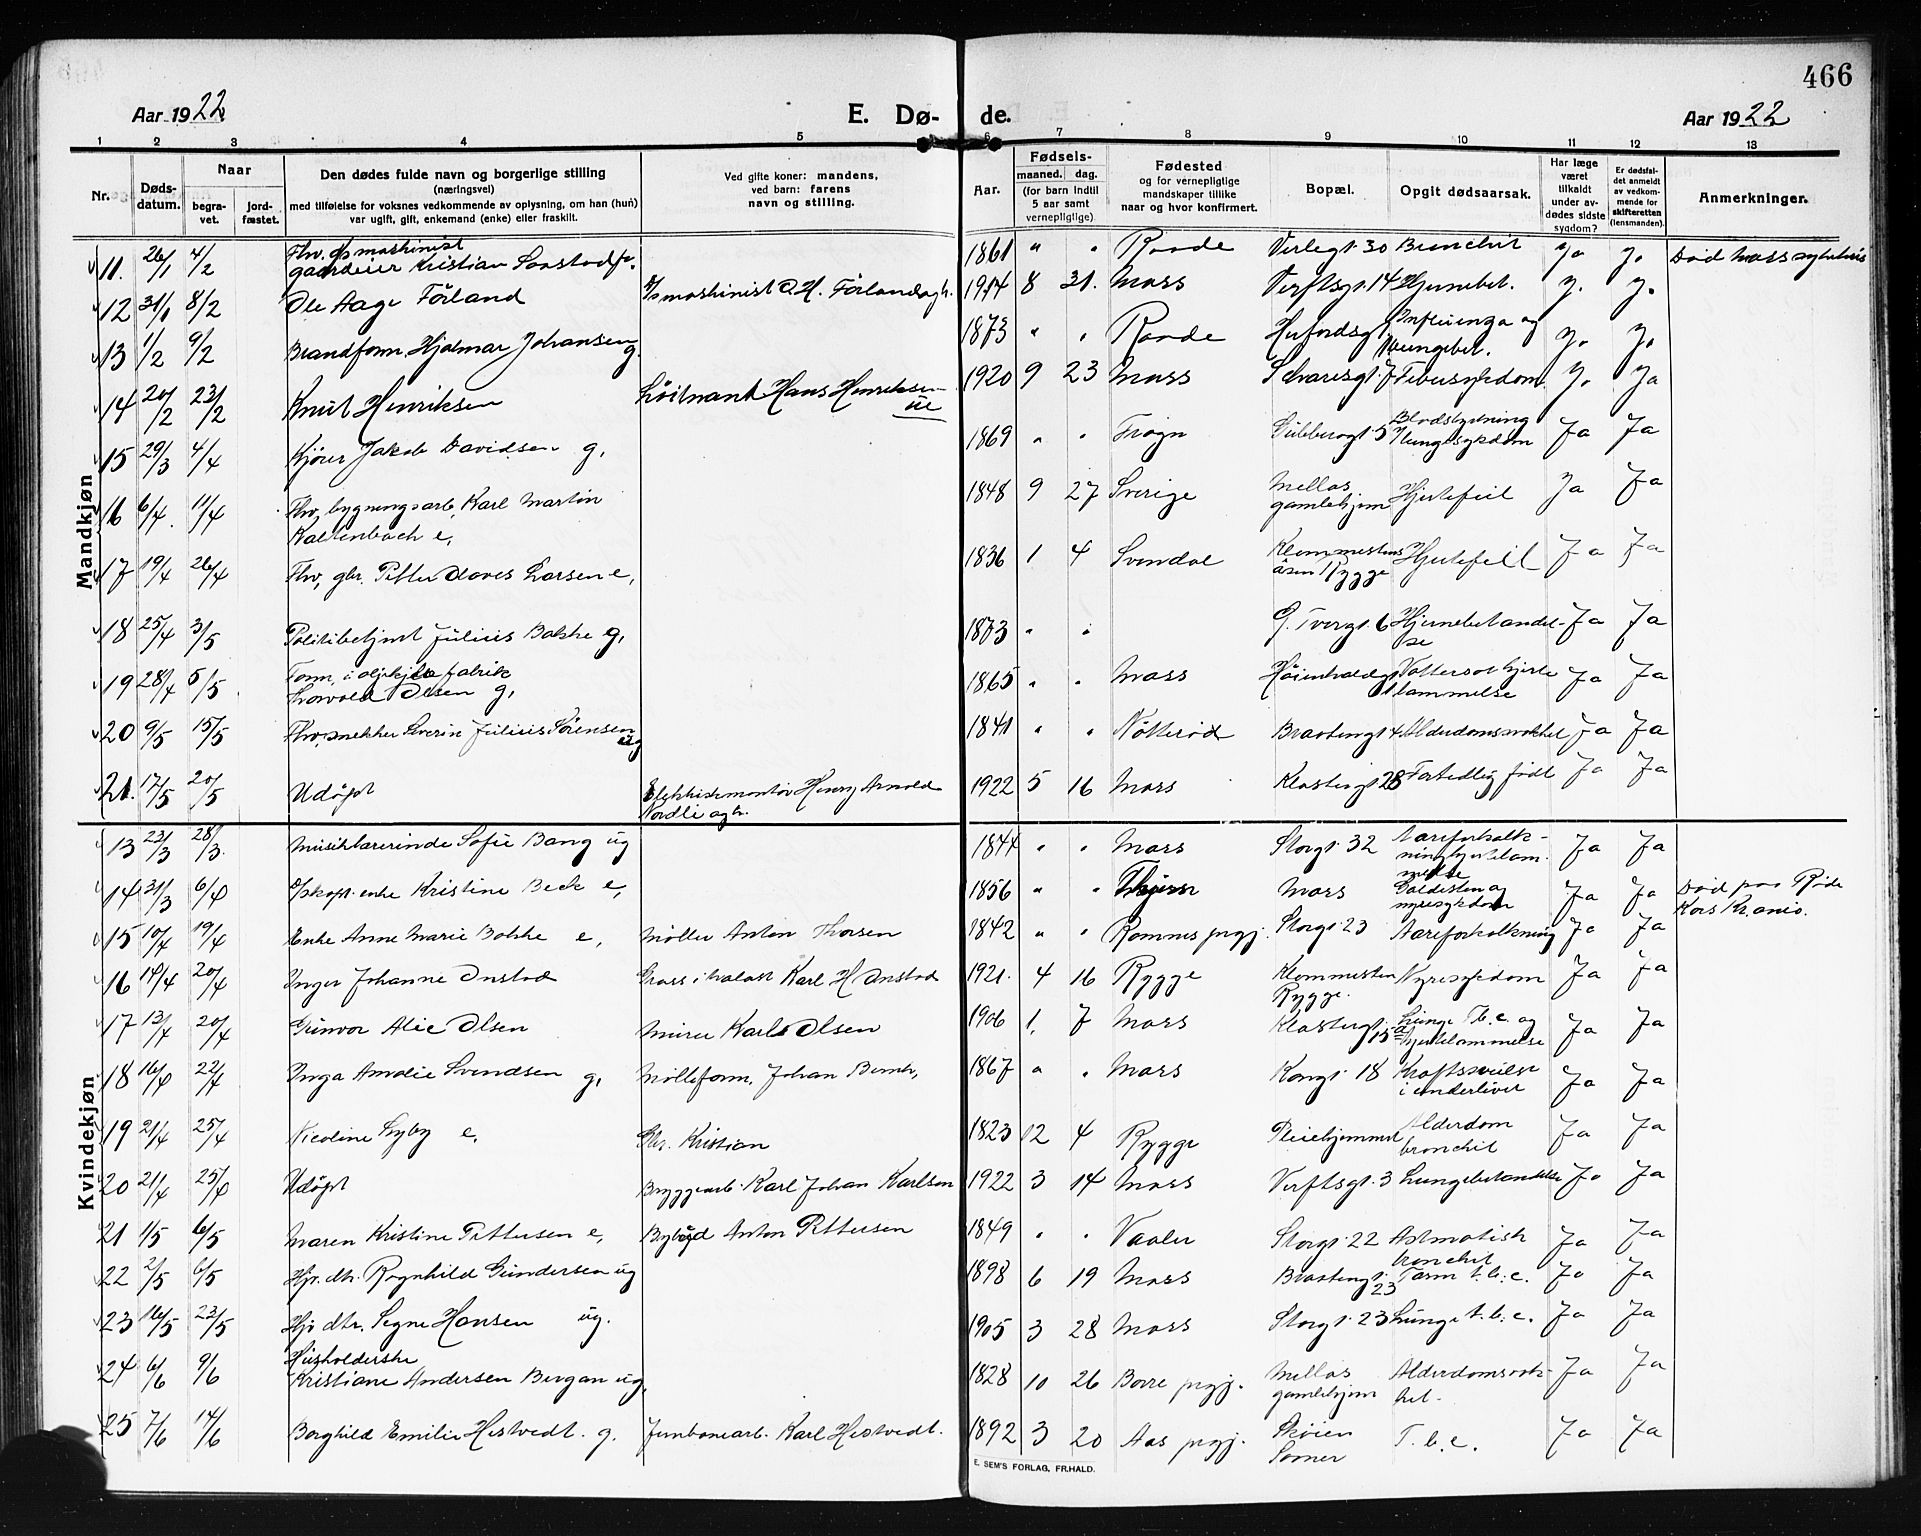 466
Aar 1922 E. Dø- de. Aar 1922
1 2 3 4 5 6 7 8 9 10 11 12 13
Nr. Døds-datum. Naar begra-vet. jord-fæstet. Den dødes fulde navn og borgerlige stilling (næringsvei) med tilføielse for voksnes vedkommende av oplysning, om han (hun) var ugift, gift, enkemand (enke) eller fraskilt. Ved gifte koner: mandens, ved barn: farens navn og stilling. Aar. Fødsels-maaned. dag. (for barn indtil 5 aar samt vernepligtige) Fødested og for vernepligtige mandskaper tillike naar og hvor konfirmert. Bopæl. Opgit dødsaarsak. Har læge været tilkaldt under av-dødes sidste sygdom? Er dødsfal-det anmeldt av vedkom-mende for skifteretten (lensmanden). Anmerkninger.
Mandkjøn
11. 26/1 4/2 Fhv. maskinist gaardeier Kristian 1861 " " Raade 30 Bronchit ja j. Død Moss sykehus
12 31/1 8/2 Ole Aage Førland maskinist O. H. Førland 1914 8 31. Moss Verftsgt. 14 Hjernebet. j. j.
13 1/2 9/2 Brandform. Hjalmar Johansen g. 1873 " " Raade Influenza og lungebet. j. j.
14 20/2 23/2 Knut Henriksen Løitnant Hans Henriksen 1920 9 23 Moss 7 j. ja
15 29/3 4/4 Kjører Jakob Davidsen g. 1869 " " Frogn 5 Blodstyrtning lungesykdom Ja Ja
16 6/4 11/4 Fhv. bygningsarb. Karl Martin Kaltenbach e. 1848 9 27 Sverige Mellos gamlehjem Hjertefeil Ja Ja
17 19/4 26/4 Fhv. gbr. Petter Larsen e. 1836 1 4 Svindal Rygge Hjertefeil Ja Ja
18 25/4 3/5 Politibetjent Julius Bakke g. 1873 " " 6 Hjernebetændel-se Ja Ja
19 28/4 5/5 Form. i fabrik Torvald Olsen g. 1865 " " Moss Vattersot hjerte lammelse Ja Ja
20 9/5 15/5 Fhv. snekker Severin Julius Sørensen ug 1841 " " Nøtterød 4 Alderdomssvakhet Ja Ja
21. 17/5 20/5 Udøpt Elektriskmontør Henry Arnold Nordli 1922 5 16 Moss 28 Fortidlig født Ja Ja
Kvindekjøn
13 23/3 28/3. Musiklærerinde Sofie Bang ug 1844 " " Moss Storgt. 32 Aareforkalk-ning hjertelam-melse Ja Ja
14 31/3 6/4 enke Kristine Beck e. 1856 " " Moss Galdesten og nyresykdom Ja Ja Død paa Røde Kors Kr.ania.
15 10/4 19/4 Enke Anne Marie Bakke e. Møller Anton Thorsen 1842 " " prgj. Storgt. 23 Aareforkalkning Ja Ja
16 14/4 20/4 Inger Johanne Onstad Karl H. Onstad 1921. 4 16 Rygge Rygge. Nyresykdom Ja Ja
17 13/4 20/4 Gunvor Alie Olsen Murer Karl Olsen 1906 1. 7 Moss 15 Lunge T.b.c. og hjertelammelse Ja Ja
18 16/4 22/4 Inga Amalie Svendsen g. Mølleform. Johan 1867 " " Moss Kongt. 18 Kræftsvulst i underlivet Ja Ja
19 21/4 25/4 Nicoline Lyby e. Gbr. Kristian 1823 12 4 Rygge Pleiehjemmet Alderdom bronchit Ja Ja
20 21/4 25/4 Udøpt Bryggearb. Karl Johan Karlsen 1922 3 14 Moss Verftsgt. 3 Lungebetændelse Ja Ja
21 1/5 6/5 Maren Kristine Pettersen e. Bybud Anton Pettersen 1849 " " Vaaler Storgt. 22 Astmatisk bronchit Ja Ja
22 2/5 6/5 Hjv. dtr. Ragnhild Gundersen ug 1898 6 19 Moss 23 Tarm t.b.c. Ja Ja
23 16/5 23/5 Hjv dtr. Signe Hansen ug. 1905 3 28 Moss Storgt. 23 Lunge t.b.c. Ja Ja
24 6/6 9/6 Husholderske Kristiane Andersen Bergan ug. 1828 10 26 Borre prgj. Mellos gamlehjem Alderdomssvak-het. Ja Ja
25 7/6 14/6 Borghild Emilie Hestvedt. g. Jernbanearb. Karl Hestvedt. 1892 3 20 Aas prgj. Skøien Soner T.b.c. Ja Ja
E. SEM'S FORLAG, FR.HALD.